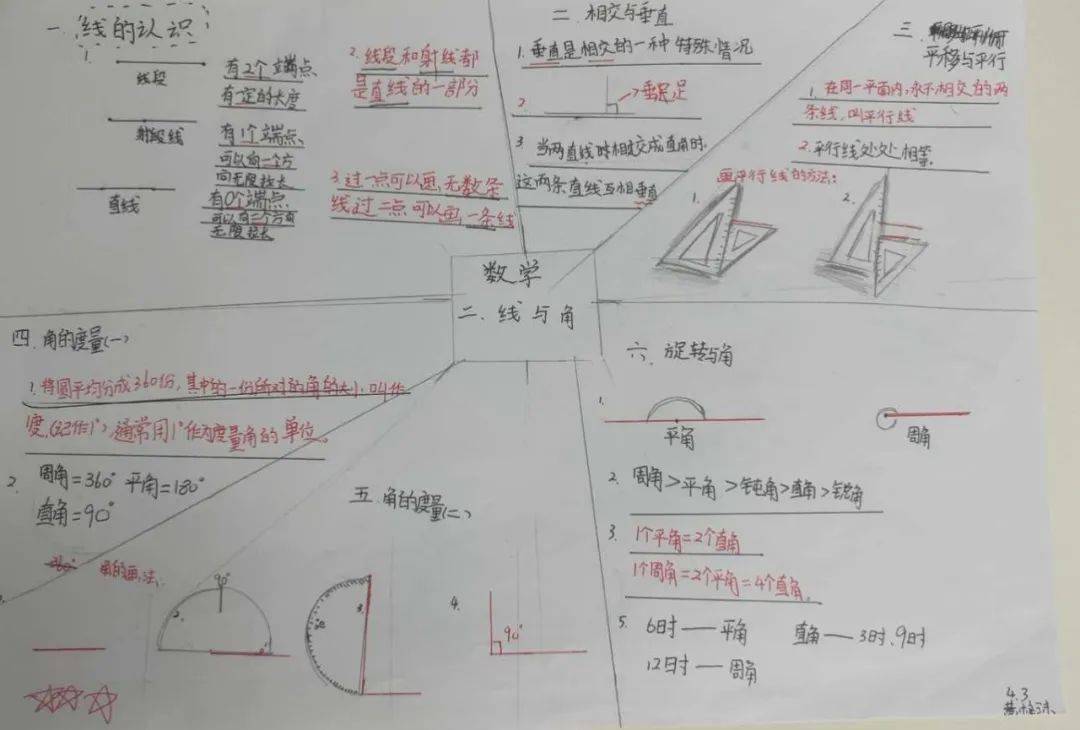 一、线的认识
1.
线段
有2个端点
有一定的长度
射线
有1个端点、
可以向一个方
向无限拉长
直线
有0个端点
可以向二个方向
无限拉长
2. 线段和射线都
是直线的一部分
3. 过一点可以画,无数条
线过二点可以画,一条线
二 相交与垂直
1. 垂直是相交的一种特殊情况
2.
垂足
3. 当两直线相交成直角时.
这两条直线互相垂直
三
平移与平行
1. 在同一平面内,永不相交的两
条线,叫平行线
2.平行线处处相等.
画平行线的方法:
1.
2.
数学
二、线与角
四. 角的度量(一)
1. 将圆平均分成360份,其中的一份所对的角的大小叫作
度,(记作1°),通常用1°作为度量角的单位。
2. 周角=360° 平角=180°
直角=90°
角的画法:
2.
90°
0°
五 角的度量(二)
3.
4.
90°
六. 旋转与角
1.
平角
周角
2. 周角>平角>钝角>直角>锐角
3. 1个平角=2个直角
1个周角=2个平角=4个直角.
5. 6时——平角 直角——3时、9时
12时——周角
4.3